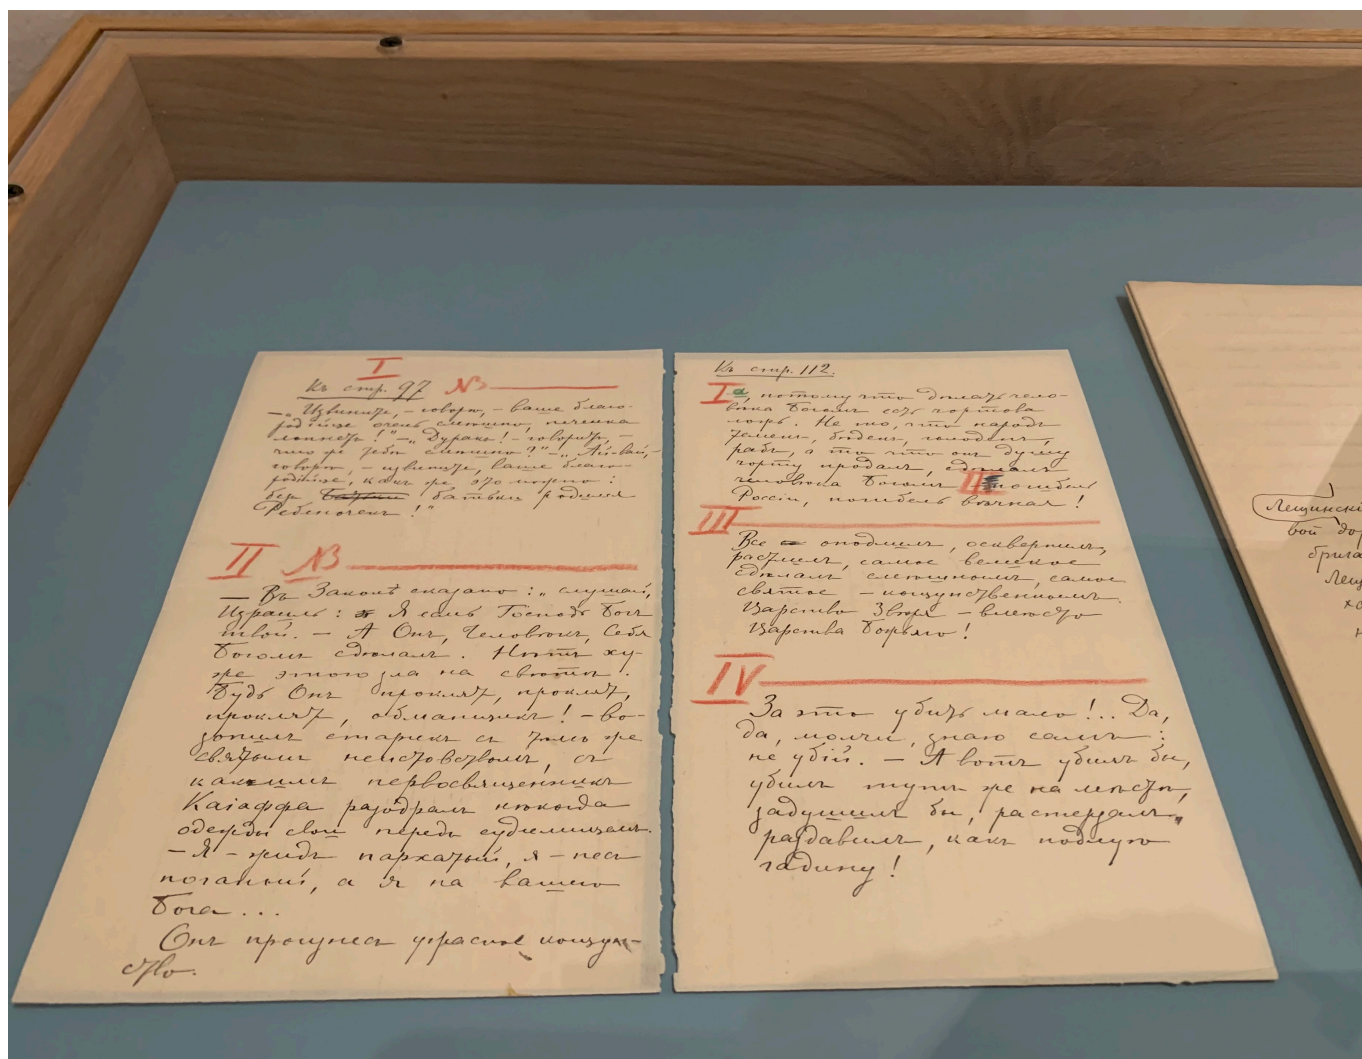 I
Къ стр. 97 №
— „Извините, — говорю, — ваше благо-
родiе очень смешно, печенка
лопнетъ!" — „Дуракъ! — говоритъ, —
чего же тебе смешно?" — „Ай-вай, —
говорю, — извините, ваше благо-
родiе, какъ же это можно:
безъ батьки родился
Ребеночекъ!"
II №
— Въ Законѣ сказано: „слушай,
Израиль: Я есмь Господь Богъ
твой. — А Онъ, Человѣкъ, Себя
Богомъ сдѣлалъ. Нѣтъ ху-
же этого зла на свѣтѣ.
Будь Онъ проклятъ, проклятъ,
проклятъ, обманщикъ! — во-
зопилъ старикъ съ тѣмъ же
святымъ неистовствомъ, съ
какимъ первосвященникъ
Каiаффа разодралъ нѣкогда
одежды свои передъ судилищемъ.
— Я — жидъ пархатый, я — песъ
поганый, а я на вашего
Бога...
Онъ произнесъ ужасное кощун-
ство.
Къ стр. 112.
I а, потому что дѣлать чело-
вѣка Богомъ есть чортова
ложь. Не то, что народъ
теменъ, бѣденъ, голоденъ,
рабъ, а то что онъ душу
чорту продалъ, сдѣлалъ
человѣка Богомъ II погибель
Россiи, погибель вѣчная!
III
Все опошлилъ, осквернилъ,
растлилъ, самое великое
сдѣлалъ смѣшнымъ, самое
святое — кощунственнымъ.
Царство Звѣря вмѣсто
Царства Божьяго!
IV
За это убить мало!.. Да,
да, молчи, знаю самъ:
не убiй. — А вотъ убилъ бы,
убилъ тутъ же на мѣстѣ,
задушилъ бы, растерзалъ,
раздавилъ, какъ подлую
гадину!
Лещинскi
вой дор
брига
Лещ
хо
н